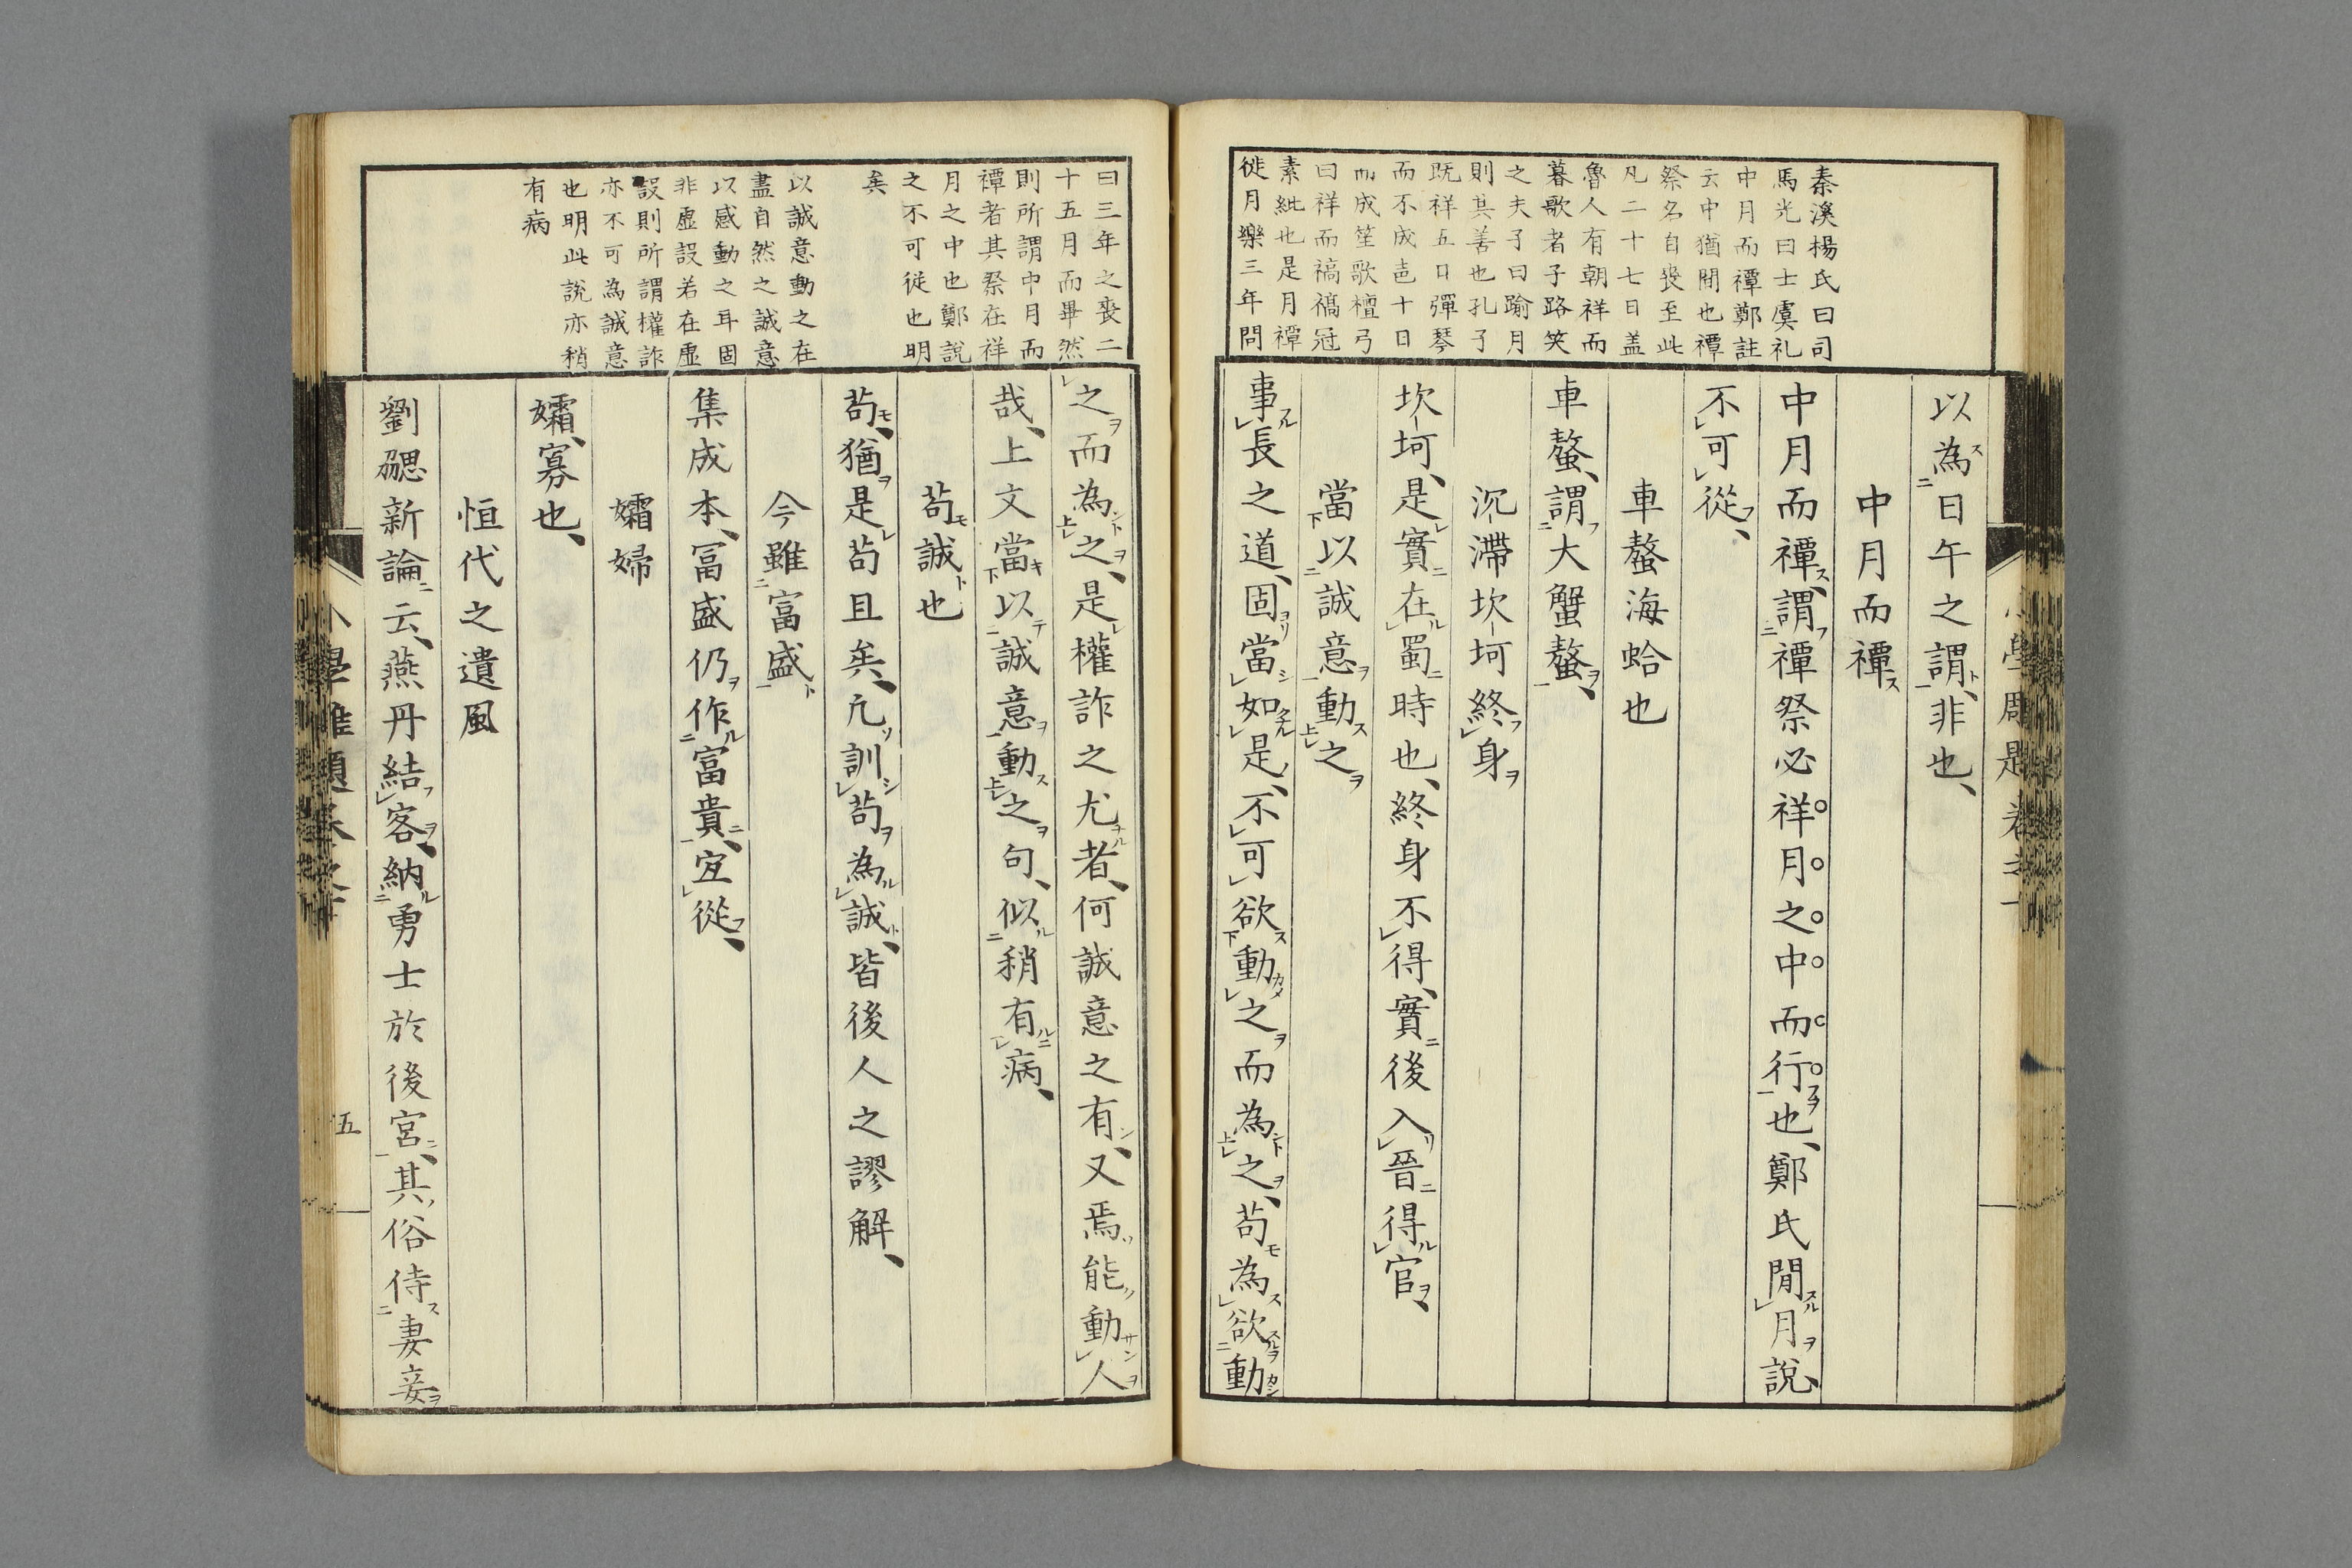 秦溪楊氏曰司
馬光曰士虞礼
中月而禫鄭註
云中猶間也禫
祭名自喪至此
凡二十七日盖
魯人有朝祥而
暮歌者子路笑
之夫子曰踰月
則其善也孔子
既祥五日彈琴
而不成声十日
而成笙歌檀弓
曰祥而縞縞冠
素紕也是月禫
徙月樂三年問
以為日午之謂非也
中月而禫
中月而禫謂禫祭必祥月之中而行也鄭氏間月說
不可從
車螯海蛤也
車螯謂大蟹螯
沉滯坎坷終身
坎坷是實在蜀時也終身不得實後入晉得官
當以誠意動之
事長之道固當如是不可欲動之而為之苟為欲動
曰三年之喪二
十五月而畢然
則所謂中月而
禫者其祭在祥
月之中也鄭說
之不可從也明
矣
以誠意動之在
盡自然之誠意
以感動之耳固
非虛設若在虛
設則所謂權詐
亦不可為誠意
也明此說亦稍
有病
之而為之是權詐之尤者何誠意之有又焉能動人
哉上文當以誠意動之句似稍有病
苟誠也
苟猶是苟且矣凢訓苟為誠皆後人之謬解
今雖富盛
集成本冨盛仍作富貴宜從
孀婦
孀寡也
恒代之遺風
劉勰新論云燕丹結客納勇士於後宮其俗侍妻妾
五